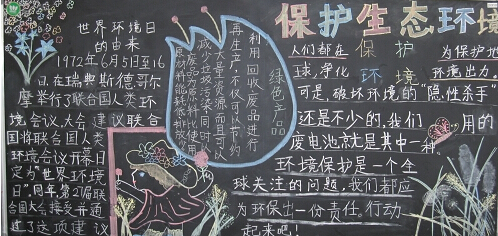 世界环境日
的由来
1972年6月5日至16
日在瑞典斯德哥尔
摩举行了联合国人类环
境会议大会建议联合
国将联合国人类
环境会议开幕日
定为"世界环境
日"。同年第27届联
合国大会接受并通
过了这项建议
绿色产品
利用回收废品进行
再生产,不仅可以节约
大量资源而且可以
减少垃圾污染,同时以
废品为原料比使用
原材料能耗
保护生态环境
人们都在保护
为保护地
球,净化环境
环境出力,
可是,破坏环境的"隐性杀手"
还是不少的,我们用的
废电池就是其中一种。
环境保护是一个全
球关注的问题,我们都应
为环保出一份责任。行动
起来吧!